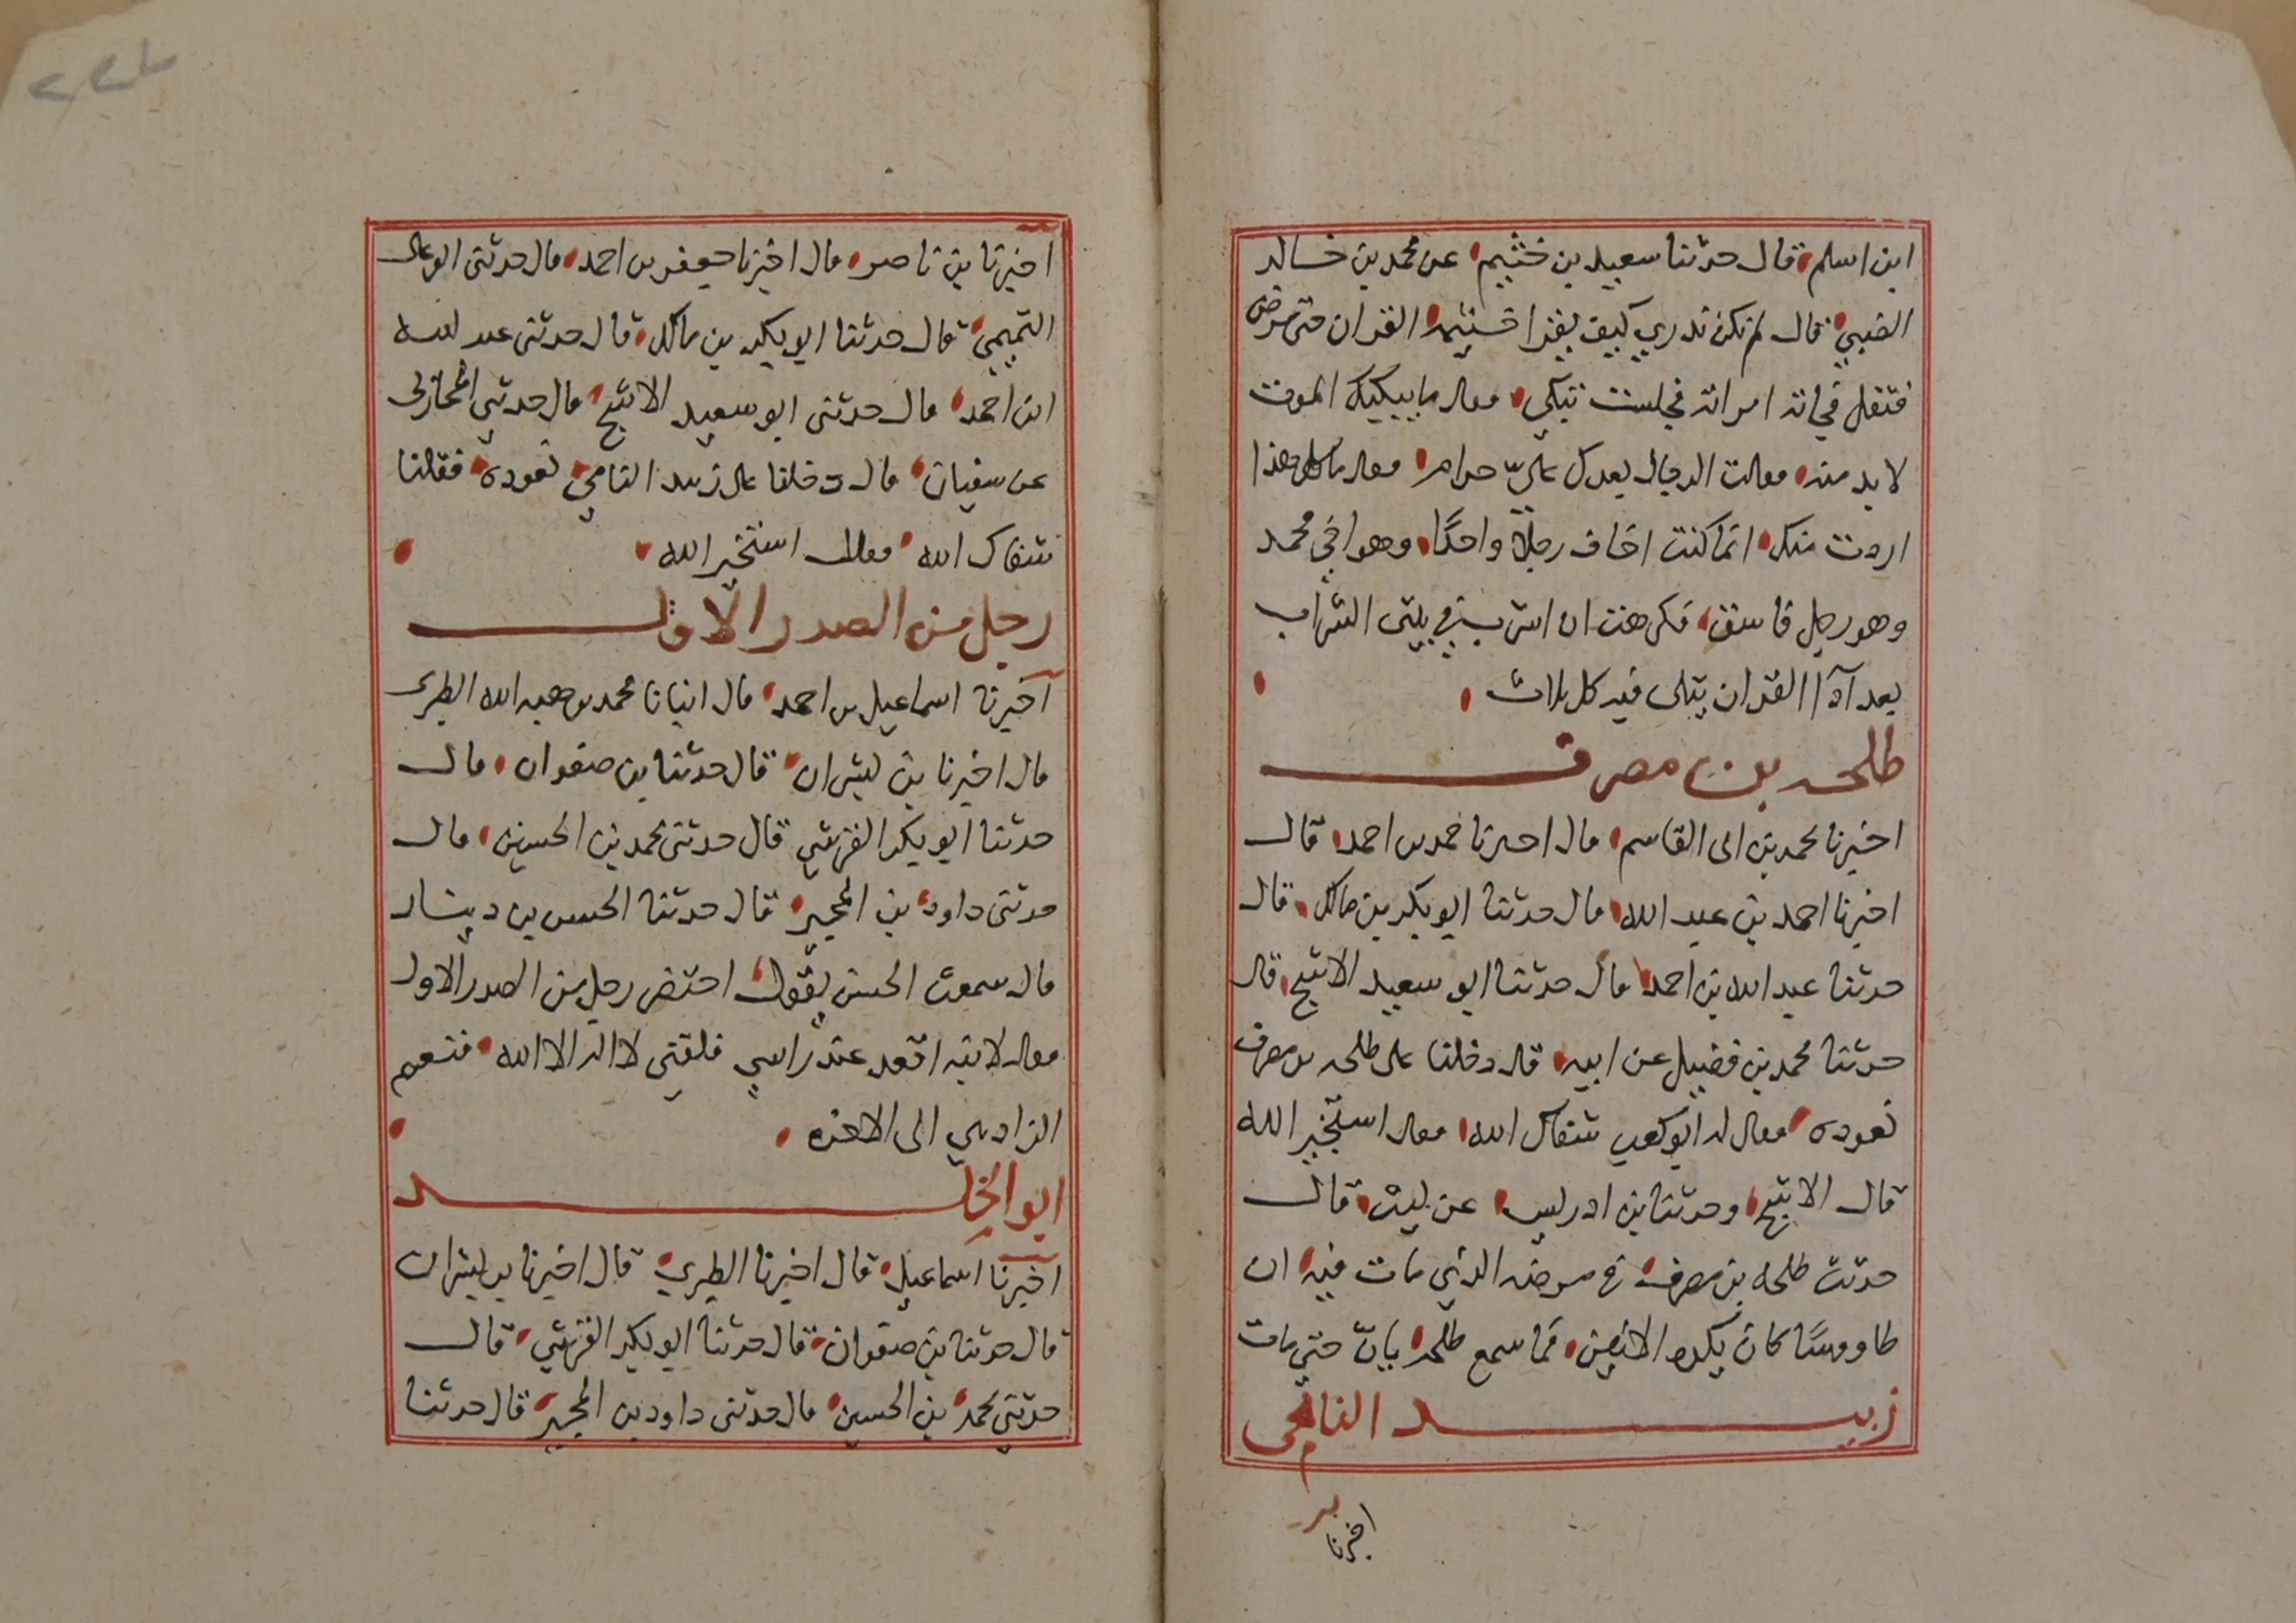 ابن اسلم قال حدثنا سعيد بن خثيم عن محمد بن خالد
الضبي قال لم نكن ندري كيف يقرا خثيمه القران حتى مرض
فثقل فجاته امراته فجلست تبكي فقال ما يبكيك الموت
لا بد منه فقالت الرجال بعدك علي حرام فقال ما كل هذا
اردت منك انما كنت اخاف رجلا واحدا وهو اخي محمد
وهو رجل فاسق فكرهت ان اشرب في بيتي الشراب
بعد اذا القران يتلى فيه كل ثلاث
طلحه بن مصرف
اخبرنا محمد بن ابى القاسم قال اخبرنا حمد بن احمد قال
اخبرنا احمد بن عبد الله قال حدثنا ابو بكر بن مالك قال
حدثنا عبد الله بن احمد قال حدثنا ابو سعيد الاشج قال
حدثنا محمد بن فضيل عن ابيه قال دخلنا على طلحه بن مصرف
نعوده فقال له ابو كعب شفاك الله فقال استخير الله
قال الاشج وحدثنا بن ادريس عن ليث قال
حدثت طلحه بن مصرف في مرضه الذي مات فيه ان
طاووسًا كان يكره الانين فما سمع طلحه يان حتى مات
زبيد اليامى
اخبرنا
اخبرنا بن ناصر قال اخبرنا جعفر بن احمد قال حدثنى ابو على
التميمي قال حدثنا ابو بكر بن مالك قال حدثنى عبد الله
ابن احمد قال حدثنى ابو سعيد الاشج قال حدثني المحاربى
عن سفيان قال دخلنا على زبيد اليامي نعوده فقلنا
شفاك الله فقال استخير الله
رجل من الصدر الاول
اخبرنا اسماعيل بن احمد قال انبانا محمد بن هبه الله الطبرى
قال اخبرنا بن بشران قال حدثنا بن صفوان قال
حدثنا ابو بكر القرشي قال حدثنى محمد بن الحسين قال
حدثنى داود بن المحبر قال حدثنا الحسن بن دينار
قال سمعت الحسن يقول احتضر رجل من الصدر الاول
فقال لابنه اقعد عند راسي فلقني لا اله الا الله فنعم
الزاد هي الى الاخره
ابو الخلد
اخبرنا اسماعيل قال اخبرنا الطبري قال اخبرنا بن بشران
قال حدثنا بن صفوان قال حدثنا ابو بكر القرشي قال
حدثني محمد بن الحسين قال حدثنى داود بن المحبر قال حدثنا